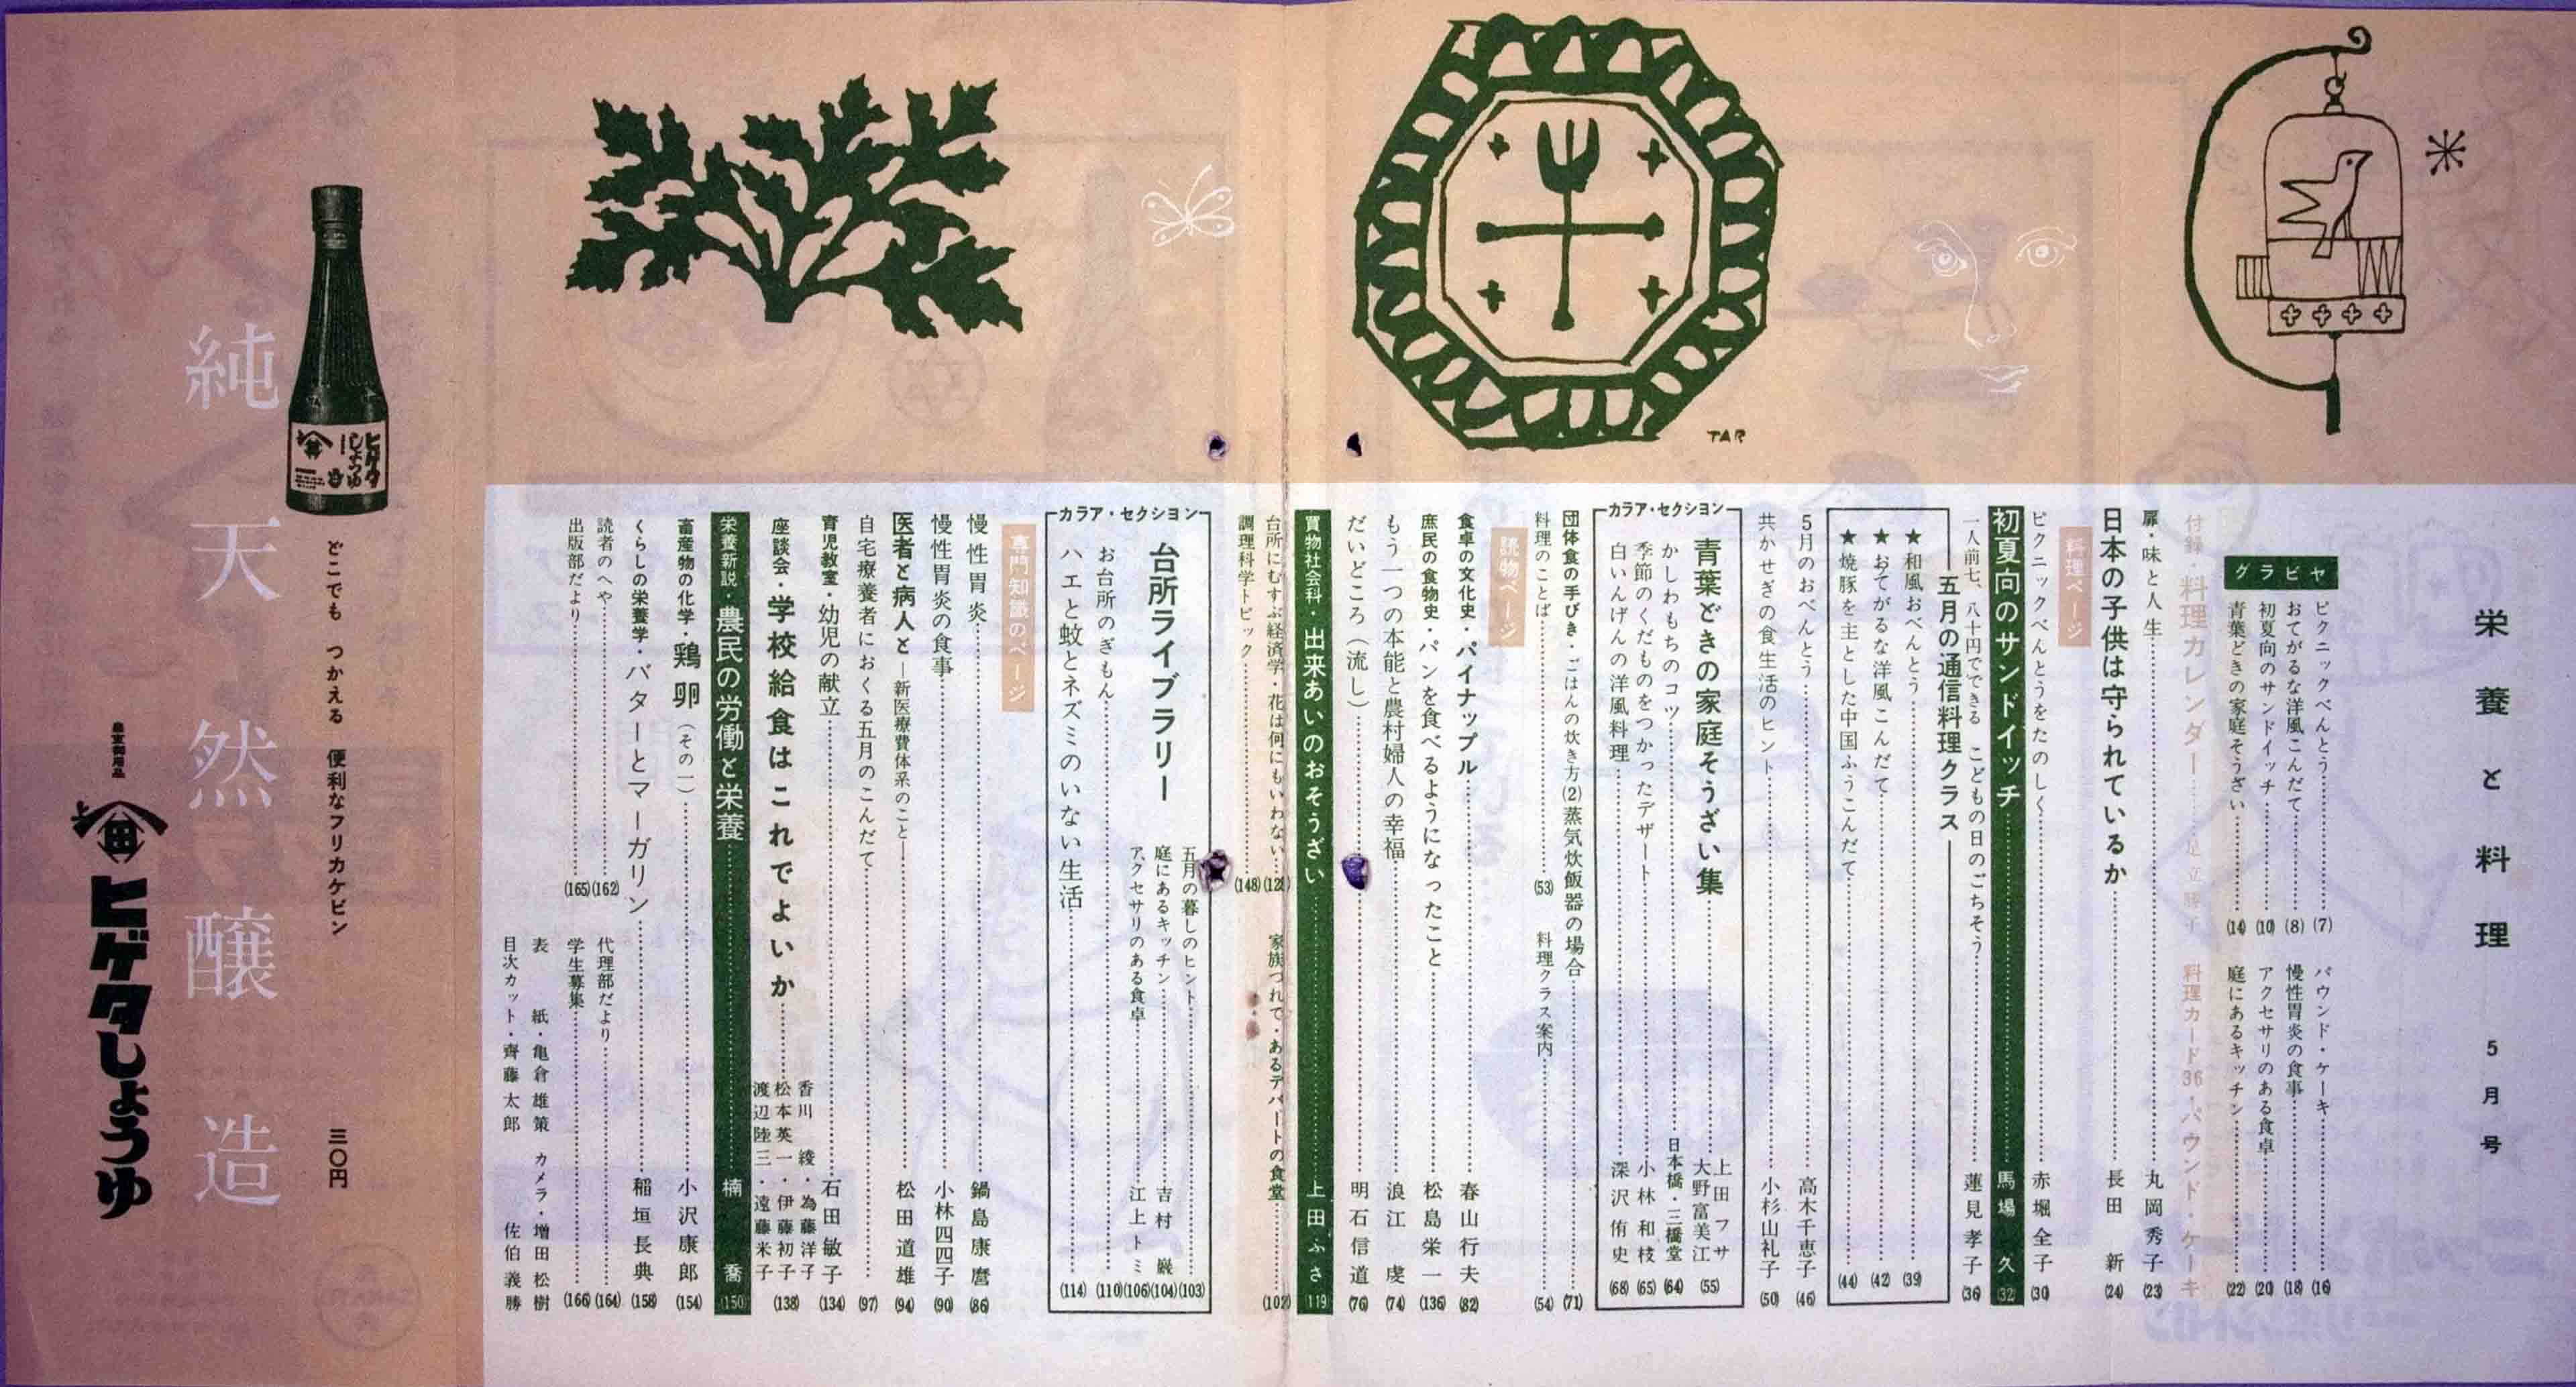 栄養と料理 5月号
グラビヤ
ピクニックべんとう (7)
おてがるな洋風こんだて (8)
初夏向のサンドイッチ (10)
青葉どきの家庭そうざい (14)
パウンド・ケーキ (16)
慢性胃炎の食事 (18)
アクセサリのある食卓 (20)
庭にあるキッチン (22)
付録・料理カレンダー
料理カード36・パウンド・ケーキ
扉・味と人生 丸岡秀子 (23)
日本の子供は守られているか 長田新 (24)
料理ページ
ピクニックべんとうをたのしく 赤堀全子 (30)
初夏向のサンドイッチ 馬場久 (32)
一人前七、八十円でできる こどもの日のごちそう 蓮見孝子 (36)
五月の通信料理クラス
★和風おべんとう (39)
★おてがるな洋風こんだて (42)
★焼豚を主とした中国ふうこんだて (44)
5月のおべんとう 高木千恵子 (46)
共かせぎの食生活のヒント 小杉山礼子 (50)
カラア・セクション
青葉どきの家庭そうざい集 上田フサ 大野富美江 (55)
かしわもちのコツ 日本橋・三橋堂 (64)
季節のくだものをつかったデザート 小林和枝 (65)
白いんげんの洋風料理 深沢侑史 (68)
団体食の手びき・ごはんの炊き方(2)蒸気炊飯器の場合 (71)
料理のことば (53)
料理クラス案内 (54)
読物ページ
食卓の文化史・パイナップル 春山行夫 (82)
庶民の食物史・パンを食べるようになったこと 松島栄一 (136)
もう一つの本能と農村婦人の幸福 浪江虔 (74)
だいどころ(流し) 明石信道 (76)
買物社会科・出来あいのおそうざい 上田ふさ (119)
台所にむすぶ経済学・花は何にもいわない
家族つれて・あるデパートの食堂 (102)
調理科学トピック (148)
カラア・セクション
台所ライブラリー
五月の暮しのヒント (103)
庭にあるキッチン 吉村巌 (104)
アクセサリのある食卓 江上トミ (106)
お台所のぎもん (110)
ハエと蚊とネズミのいない生活 (114)
専門知識のページ
慢性胃炎 鍋島康麿 (86)
慢性胃炎の食事 小林四四子 (90)
医者と病人と―新医療費体系のこと― 松田道雄 (94)
自宅療養者におくる五月のこんだて (97)
育児教室・幼児の献立 石田敏子 (134)
座談会・学校給食はこれでよいか (138)
香川綾・為藤洋子
松本英一・伊藤初子
渡辺陸三・遠藤米子
栄養新説・農民の労働と栄養 楠喬 (150)
畜産物の化学・鶏卵(その一) 小沢康郎 (154)
くらしの栄養学・バターとマーガリン 稲垣長典 (158)
読者のへや (162)
出版部だより (165)
代理部だより (164)
学生募集 (166)
表紙・亀倉雄策 カメラ・増田松樹
目次カット・齊藤太郎 佐伯義勝
TAR
ヒゲタしょうゆ
どこでも つかえる 便利なフリカケビン 三〇円
純天然醸造
皇室御用品
ヒゲタしょうゆ